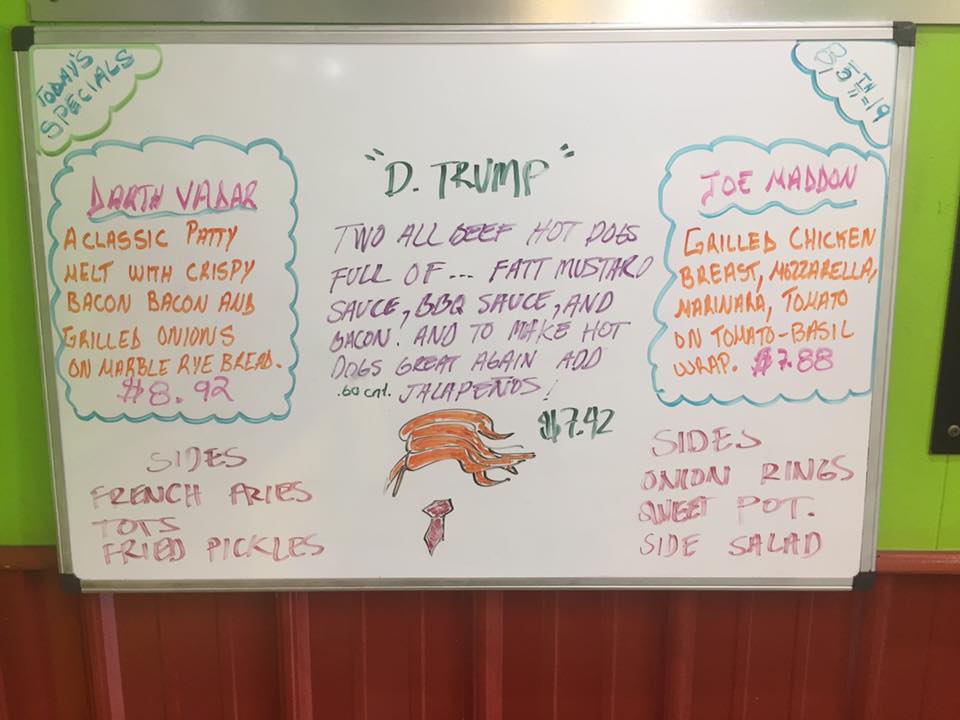 TODAY'S
SPECIALS
DARTH VADAR
A CLASSIC PATTY
MELT WITH CRISPY
BACON BACON AND
GRILLED ONIONS
ON MARBLE RYE BREAD.
$8.92
SIDES
FRENCH FRIES
TOTS
FRIED PICKLES
"D. TRUMP"
TWO ALL BEEF HOT DOGS
FULL OF... FATT MUSTARD
SAUCE, BBQ SAUCE, AND
BACON. AND TO MAKE HOT
DOGS GREAT AGAIN ADD
.60 cnt. JALAPEÑOS!
$7.42
JOE MADDON
GRILLED CHICKEN
BREAST, MOZZARELLA,
MARINARA, TOMATO
ON TOMATO-BASIL
WRAP. $7.88
SIDES
ONION RINGS
SWEET POT.
SIDE SALAD